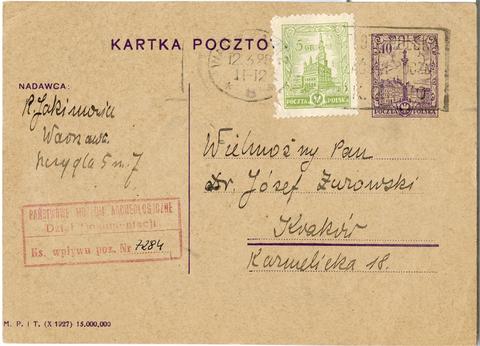 KARTKA POCZTO
12.3.28
11-12
5 GR
POCZTA POLSKA
10
POCZTA POLSKA
NADAWCA:
R. Jakimowicz
Warszawa
5 m 7
Wielmożny Pan
Dr. Józef Żurowski
Kraków
Karmelicka 18.
PAŃSTWOWE MUZEUM ARCHEOLOGICZNE
Dział Dokumentacji
Ks. wpływu poz. Nr 7284
M. P. i T. (X 1927) 15,000,000